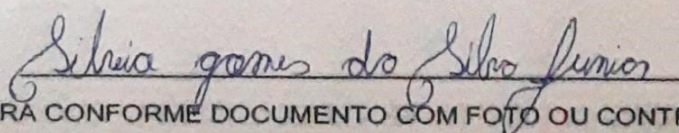 Silvia gomes do Silva Junior
RA CONFORME DOCUMENTO COM FOTO OU CONT